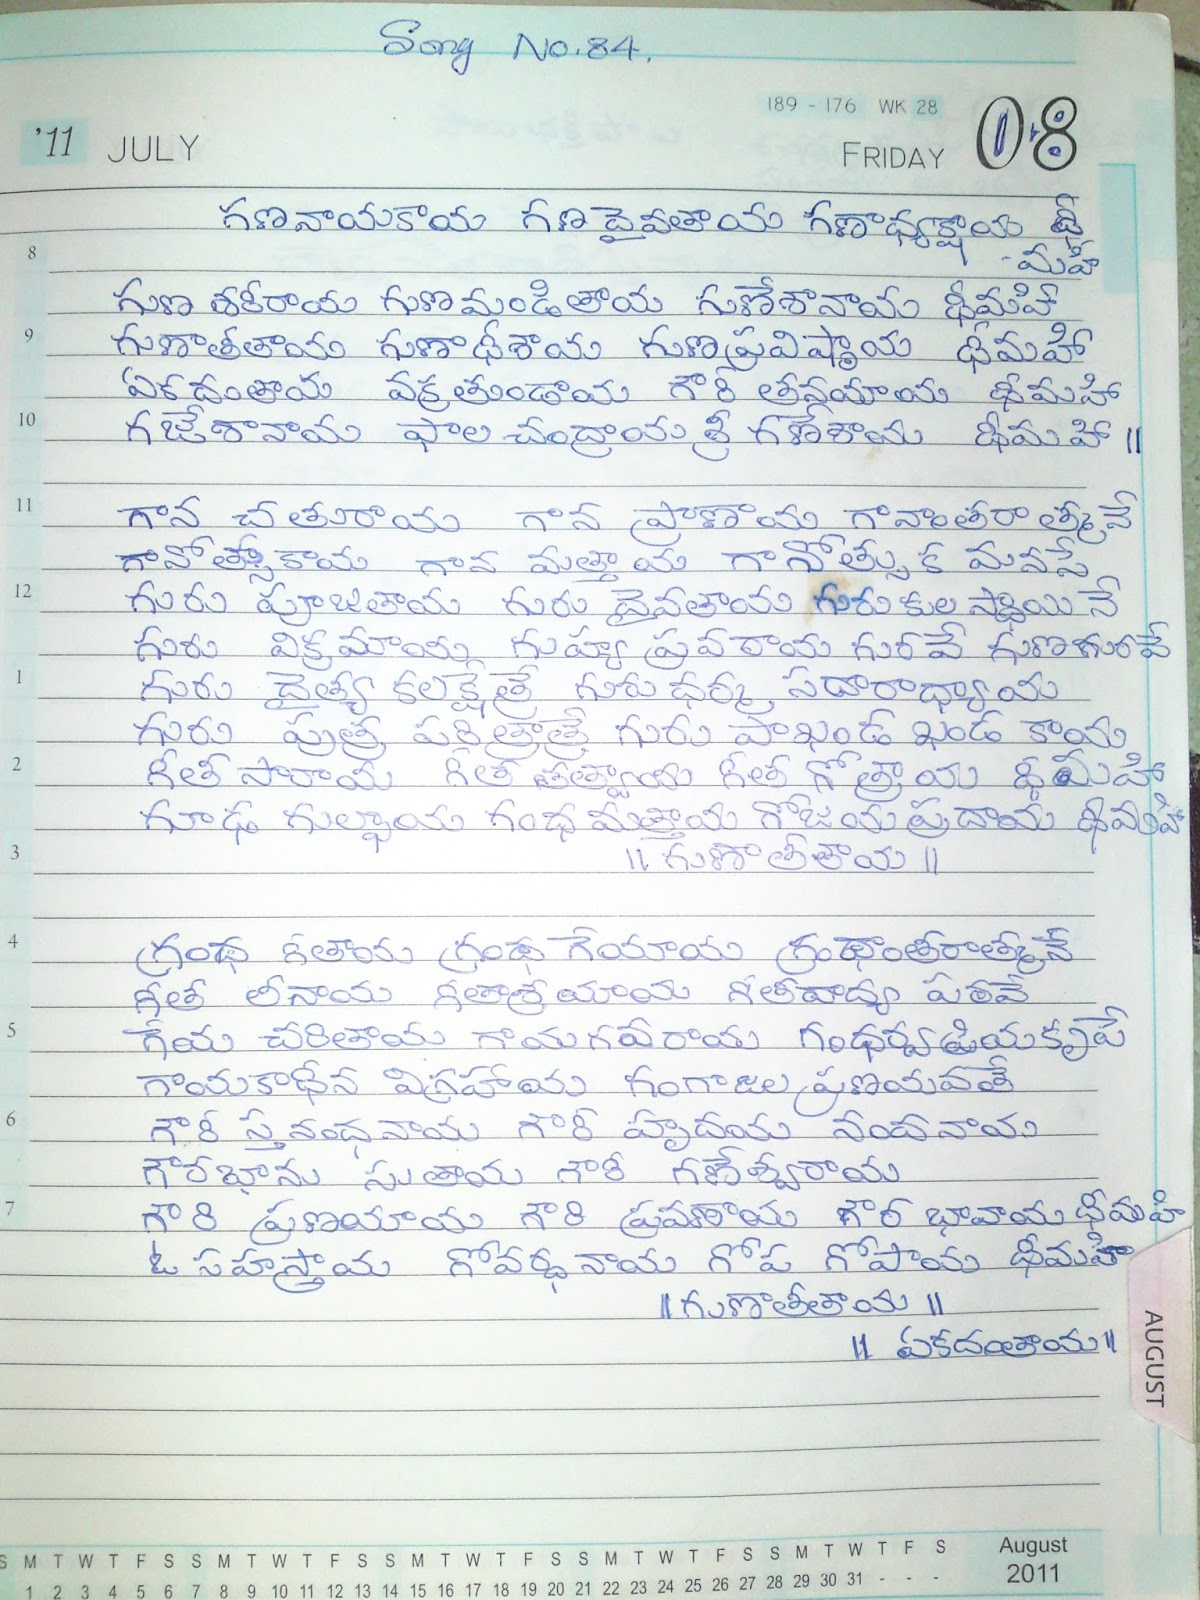 Song No. 84.
189 - 176 WK 28
'11 JULY FRIDAY 08
గణనాయకాయ గణదైవతాయ గణాధ్యక్షాయ ధీ
8
- మహి
గుణ శరీరాయ గుణమండితాయ గుణేశానాయ ధీమహి
9
గుణాతీతాయ గుణాధీశాయ గుణప్రవిష్టాయ ధీమహి
ఏకదంతాయ వక్రతుండాయ గౌరీ తనయాయ ధీమహి
10
గజేశానాయ ఫాల చంద్రాయ శ్రీ గణేశాయ ధీమహి ||
11
గాన చతురాయ గాన ప్రాణాయ గానాంతరాత్మనే
గానోత్సుకాయ గాన మత్తాయ గానోత్సుక మనసే
12
గురు పూజితాయ గురు దైవతాయ గురుకుల స్థాయినే
గురు విక్రమాయ గుహ్య ప్రవరాయ గురవే గుణగురవే
1
గురు దైత్య కలక్షేత్రే గురు ధర్మ సదారాధ్యాయ
గురు పుత్ర పరిత్రాత్రే గురు పాఖండ ఖండ కాయ
2
గీత సారాయ గీత తత్వాయ గీత గోత్రాయ ధీమహి
గూఢ గుల్ఫాయ గంధ మత్తాయ గోజయ ప్రదాయ ధీమహి
3
|| గుణాతీతాయ ||
4
గ్రంథ గీతాయ గ్రంథ గేయాయ గ్రంథాంతరాత్మనే
గీత లీనాయ గీతాశ్రయాయ గీతవాద్య పఠవే
5
గేయ చరితాయ గాయగవరాయ గంధర్వప్రియకృపే
గాయకాధీన విగ్రహాయ గంగాజల ప్రణయవతే
6
గౌరీ స్తనంధనాయ గౌరీ హృదయ నందనాయ
గౌరభాను సుతాయ గౌరీ గణేశ్వరాయ
7
గౌరి ప్రణయాయ గౌరి ప్రవణాయ గౌర భావాయ ధీమహి
ఓ సహస్త్రాయ గోవర్ధనాయ గోప గోపాయ ధీమహి
|| గుణాతీతాయ ||
|| ఏకదంతాయ ||
AUGUST
S M T W T F S S M T W T F S S M T W T F S S M T W T F S S M T W T F S August
1 2 3 4 5 6 7 8 9 10 11 12 13 14 15 16 17 18 19 20 21 22 23 24 25 26 27 28 29 30 31 - - - 2011